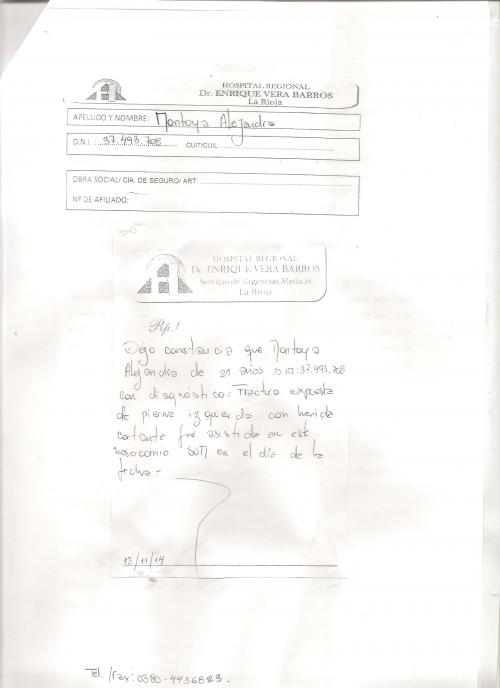 HOSPITAL REGIONAL
Dr. ENRIQUE VERA BARROS
La Rioja
APELLIDO Y NOMBRE: Montoya Alejandra
D.N.I.: 37.493.708 CUIT/CUIL:
OBRA SOCIAL/ CIA. DE SEGURO/ ART:
Nº DE AFILIADO:
HOSPITAL REGIONAL
Dr. ENRIQUE VERA BARROS
Servicio de Urgencias Medicas
La Rioja
Rp.!
Dejo constancia que Montoya
Alejandra de 21 años. DNI: 37.493.708
con diagnóstico: Fractura expuesta
de pierna izquierda con herida
cortante fué asistida en este
nosocomio en el día de la
fecha.-
13/11/14
Tel. /Fax: 0380-4436823.